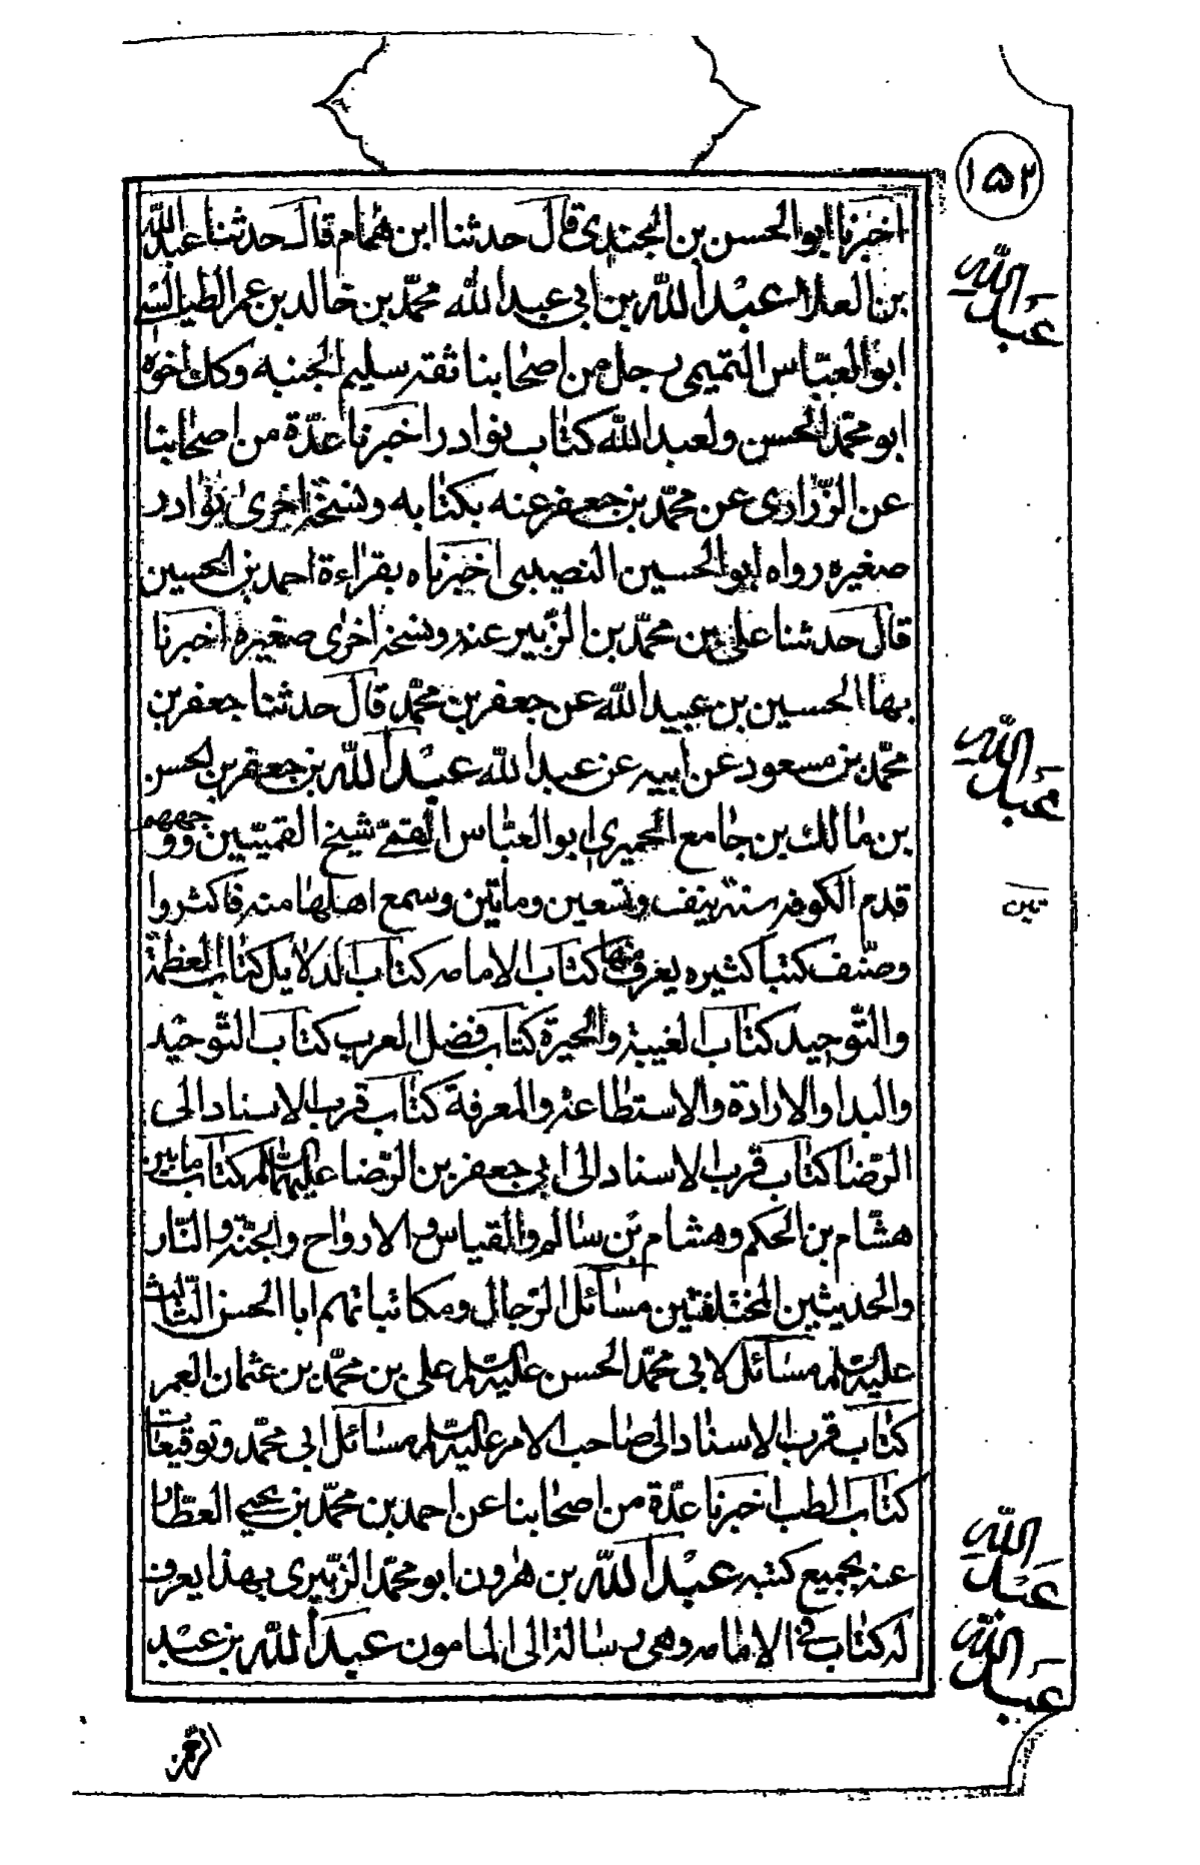 ١٥٢
اخبرنا ابو الحسن بن الجندى قال حدثنا ابن همام قال حدثنا عبد الله
بن العلا عبد الله بن ابى عبد الله محمد بن خالد بن عمر الطيالسى
ابو العباس التميمى رجل من اصحابنا ثقة سليم الجنبه وكك اخوه
ابو محمد الحسن ولعبد الله كتاب نوادر اخبرنا عدة من اصحابنا
عن الزرارى عن محمد بن جعفر عنه بكتابه ونسخة اخرى نوادر
صغيره رواه ابو الحسين النصيبى اخبرناه بقراءة احمد بن الحسين
قال حدثنا على بن محمد بن الزبير عنه ونسخة اخرى صغيره اخبرنا
بها الحسين بن عبيد الله عن جعفر بن محمد قال حدثنا جعفر بن
محمد بن مسعود عن ابيه عن عبد الله عبد الله بن جعفر بن الحسن
بن مالك بن جامع الحميرى ابو العباس القمى شيخ القميين ووجههم
قدم الكوفة سنة نيف وتسعين وماتين وسمع اهلها منه فاكثروا
وصنف كتبا كثيره يعرف منها كتاب الامامه كتاب الدلايل كتاب العظمة
والتوحيد كتاب الغيبة والحيرة كتاب فضل العرب كتاب التوحيد
والبدا والارادة والاستطاعة والمعرفة كتاب قرب الاسناد الى
الرضا كتاب قرب الاسناد الى ابى جعفر بن الرضا عليهما السلم كتاب ما بين
هشام بن الحكم وهشام بن سالم والقياس والارواح والجنة والنار
والحديثين المختلفتين مسائل الرجال ومكاتباتهم ابا الحسن الثالث
عليه السلم مسائل لابى محمد الحسن عليه السلم على بن محمد بن عثمان العمر
كتاب قرب الاسناد الى صاحب الامر عليه السلم مسائل ابى محمد وتوقيعات
كتاب الطب اخبرنا عدة من اصحابنا عن احمد بن محمد بن يحيى العطار
عنه بجميع كتبه عبد الله بن هرون ابو محمد الزبيرى بهذا يعرف
له كتاب فى الامامه وهى رسالة الى المامون عبد الله بن عبد
عبد الله
عبد الله
تين
عبد الله
عبد الله
الرحمن